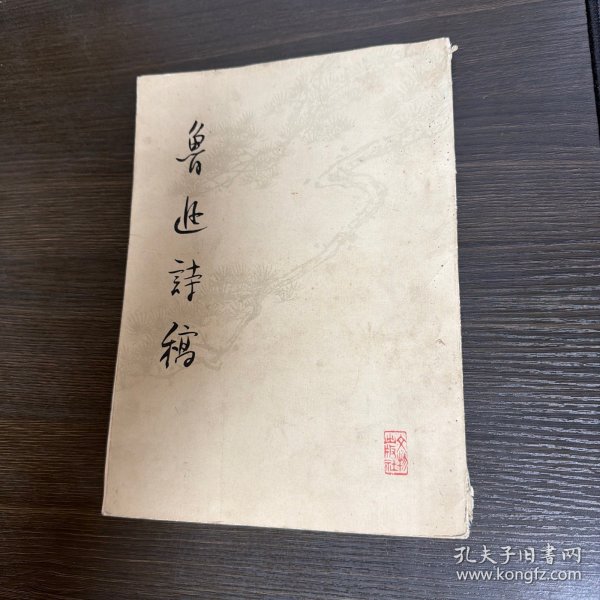 魯迅詩稿
文物
出版社
孔夫子旧書网
www.kongfz.com